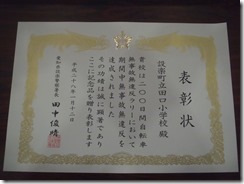 表彰状
設楽町立田口小学校 殿
貴校は二〇〇日間自転車
無事故無違反ラリーにおいて
期間中無事故無違反を
達成されました
その功績は誠に顕著であり
ここに記念品を贈り表彰します
平成二十八年一月十二日
愛知県設楽警察署長
田中俊